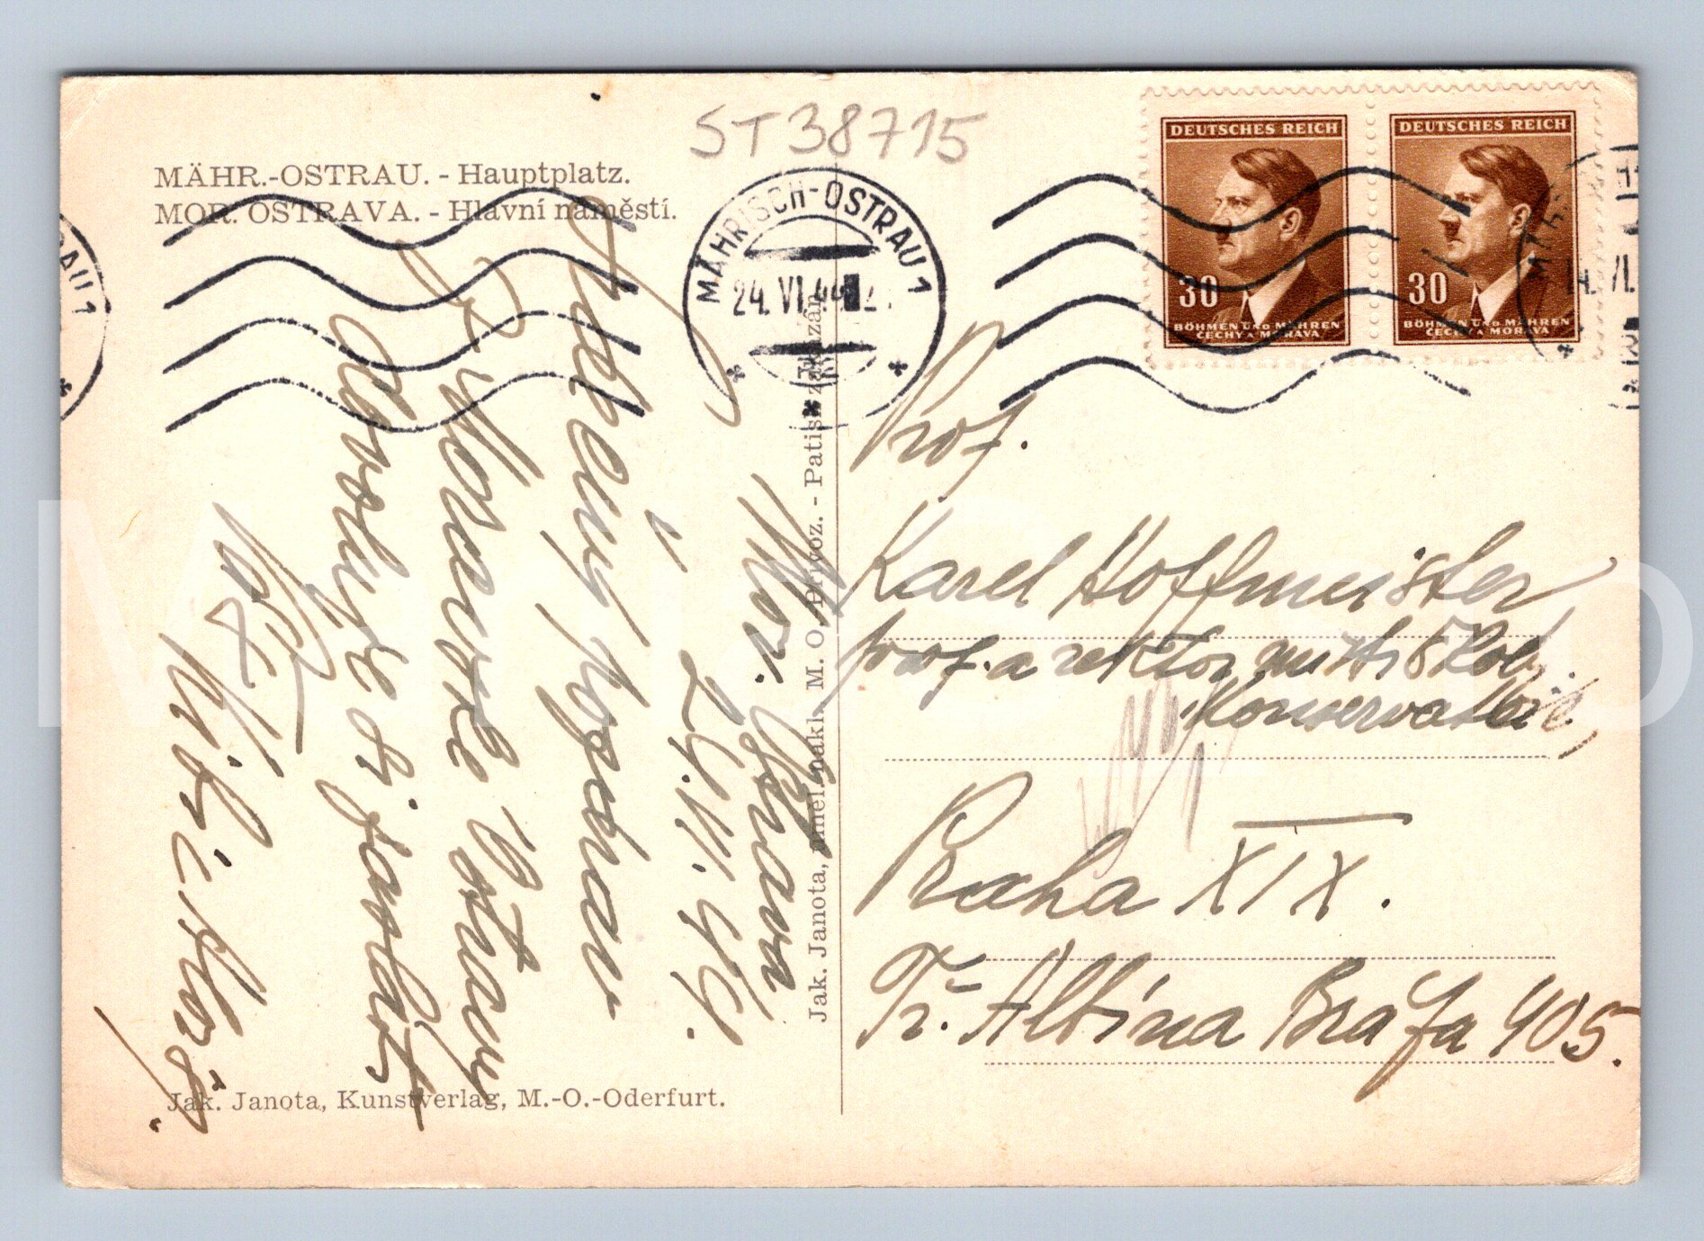 ST38715
MÄHR.-OSTRAU. - Hauptplatz.
MOR. OSTRAVA. - Hlavní náměstí.
MÄHRISCH-OSTRAU 1
24. VI. 44
RAU 1
DEUTSCHES REICH
30
BÖHMEN UND MÄHREN
ČECHY A MORAVA
DEUTSCHES REICH
30
BÖHMEN UND MÄHREN
ČECHY A MORAVA
Mor. Ostrava
24. VI. 44.
pozdrav
z Moravské Ostravy
Jak. Janota, umel. nakl. M. O. Přívoz. - Patisk zakázán
Jak. Janota, Kunstverlag, M.-O.-Oderfurt.
Prof.
Karel Hoffmeister
prof. a rektor mistr. školy
Konservatoř
Praha XIX.
Tř. Albína Bráfa 405.